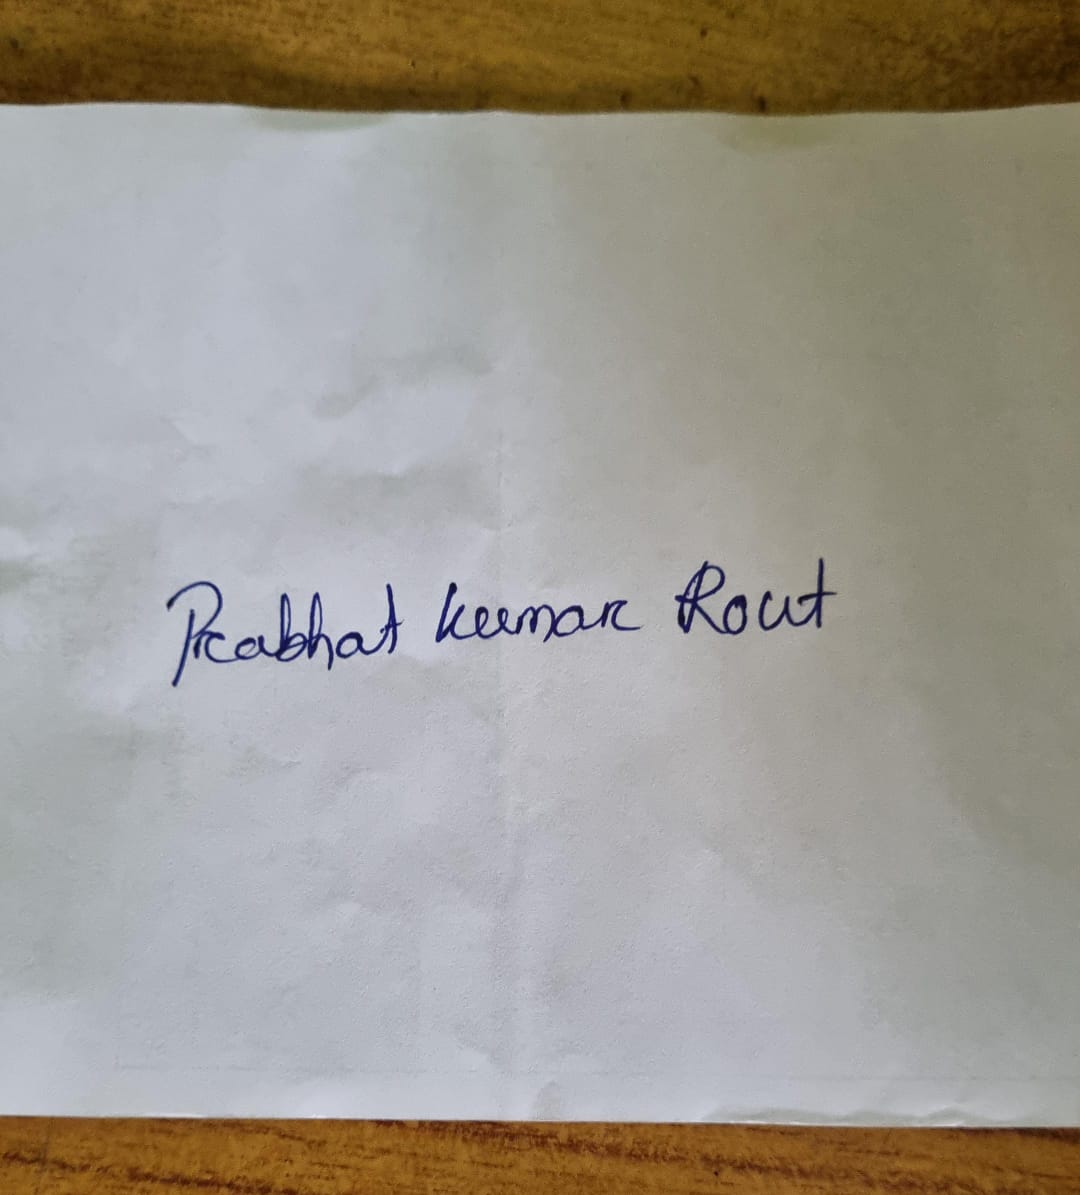 Prabhat kumar Rout